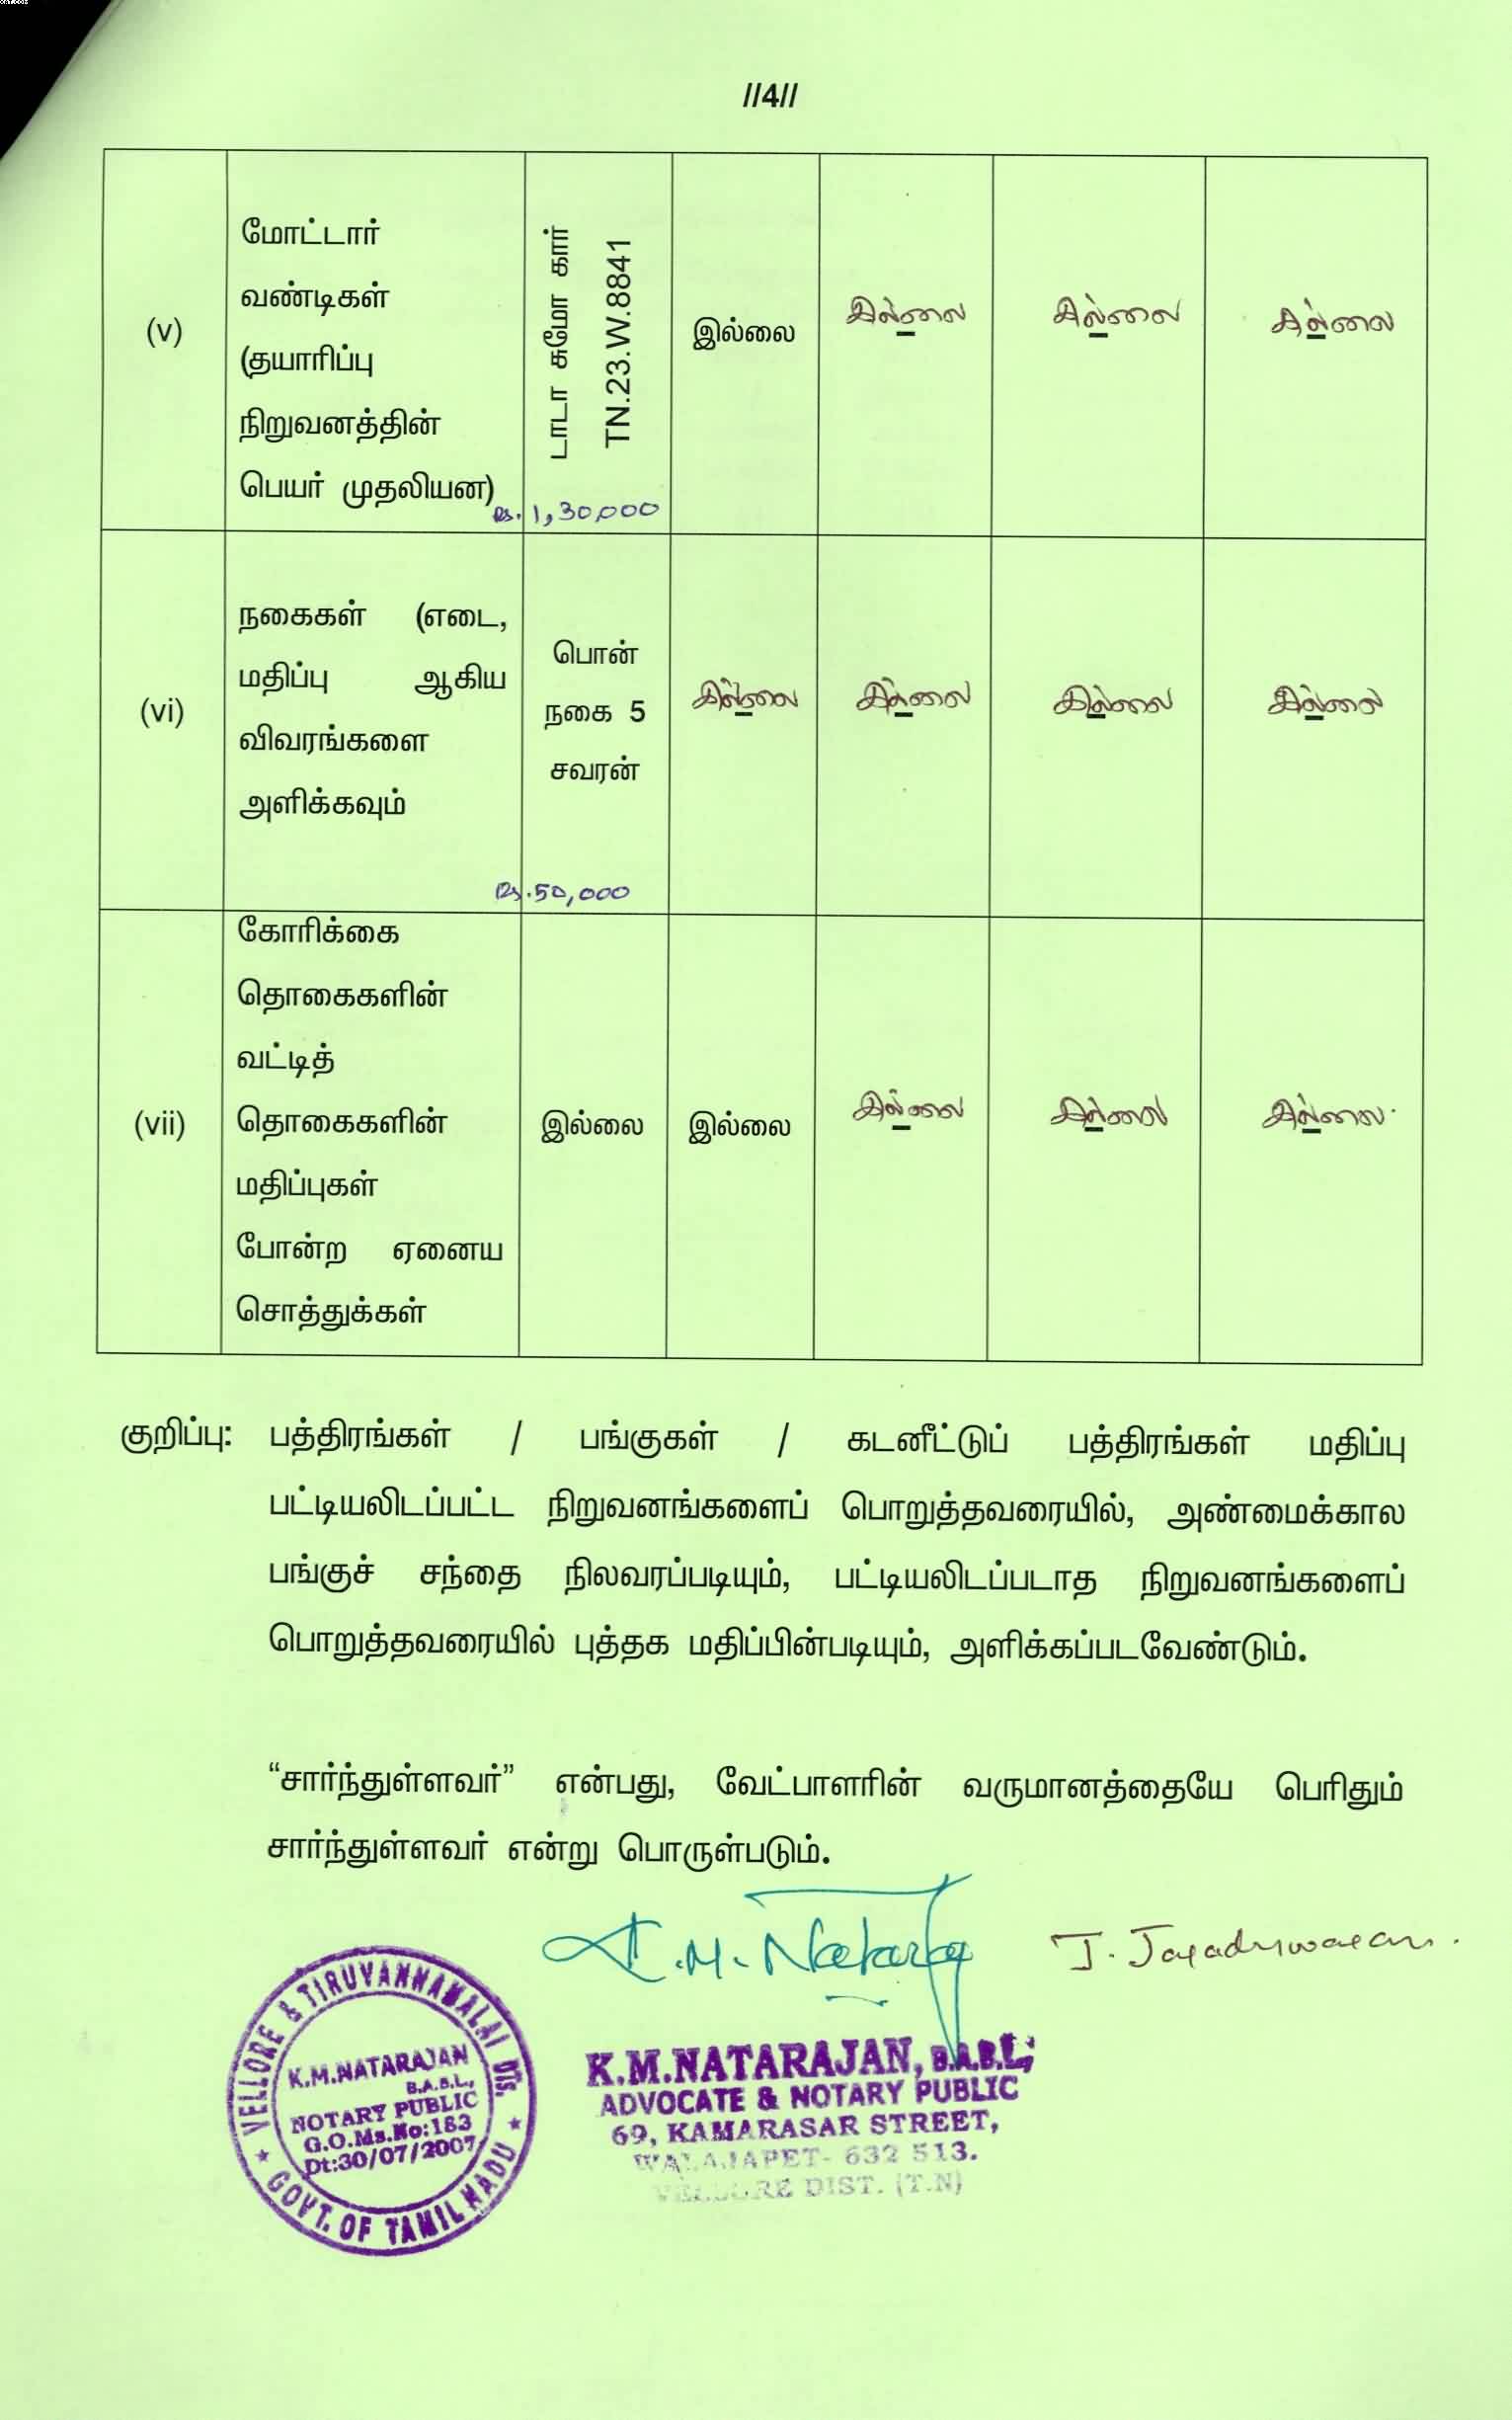 //4//
(v)
மோட்டார்
வண்டிகள்
(தயாரிப்பு
நிறுவனத்தின்
பெயர் முதலியன)
டாடா சுமோ கார்
TN.23.W.8841
Rs. 1,30,000
இல்லை
இல்லை
இல்லை
இல்லை
(vi)
நகைகள் (எடை,
மதிப்பு ஆகிய
விவரங்களை
அளிக்கவும்
பொன்
நகை 5
சவரன்
Rs. 50,000
இல்லை
இல்லை
இல்லை
இல்லை
(vii)
கோரிக்கை
தொகைகளின்
வட்டித்
தொகைகளின்
மதிப்புகள்
போன்ற ஏனைய
சொத்துக்கள்
இல்லை
இல்லை
இல்லை
இல்லை
இல்லை
குறிப்பு: பத்திரங்கள் / பங்குகள் / கடனீட்டுப் பத்திரங்கள் மதிப்பு
பட்டியலிடப்பட்ட நிறுவனங்களைப் பொறுத்தவரையில், அண்மைக்கால
பங்குச் சந்தை நிலவரப்படியும், பட்டியலிடப்படாத நிறுவனங்களைப்
பொறுத்தவரையில் புத்தக மதிப்பின்படியும், அளிக்கப்படவேண்டும்.
“சார்ந்துள்ளவர்” என்பது, வேட்பாளரின் வருமானத்தையே பெரிதும்
சார்ந்துள்ளவர் என்று பொருள்படும்.
K.M. Nataraj
VELLORE & TIRUVANNAMALAI DTS.
K.M.NATARAJAN
B.A.B.L.,
NOTARY PUBLIC
G.O.Ms.No:183
Dt:30/07/2007
GOVT. OF TAMIL NADU
K.M.NATARAJAN, B.A.B.L.,
ADVOCATE & NOTARY PUBLIC
69, KAMARASAR STREET,
WALAJAPET- 632 513.
VELLORE DIST. (T.N)